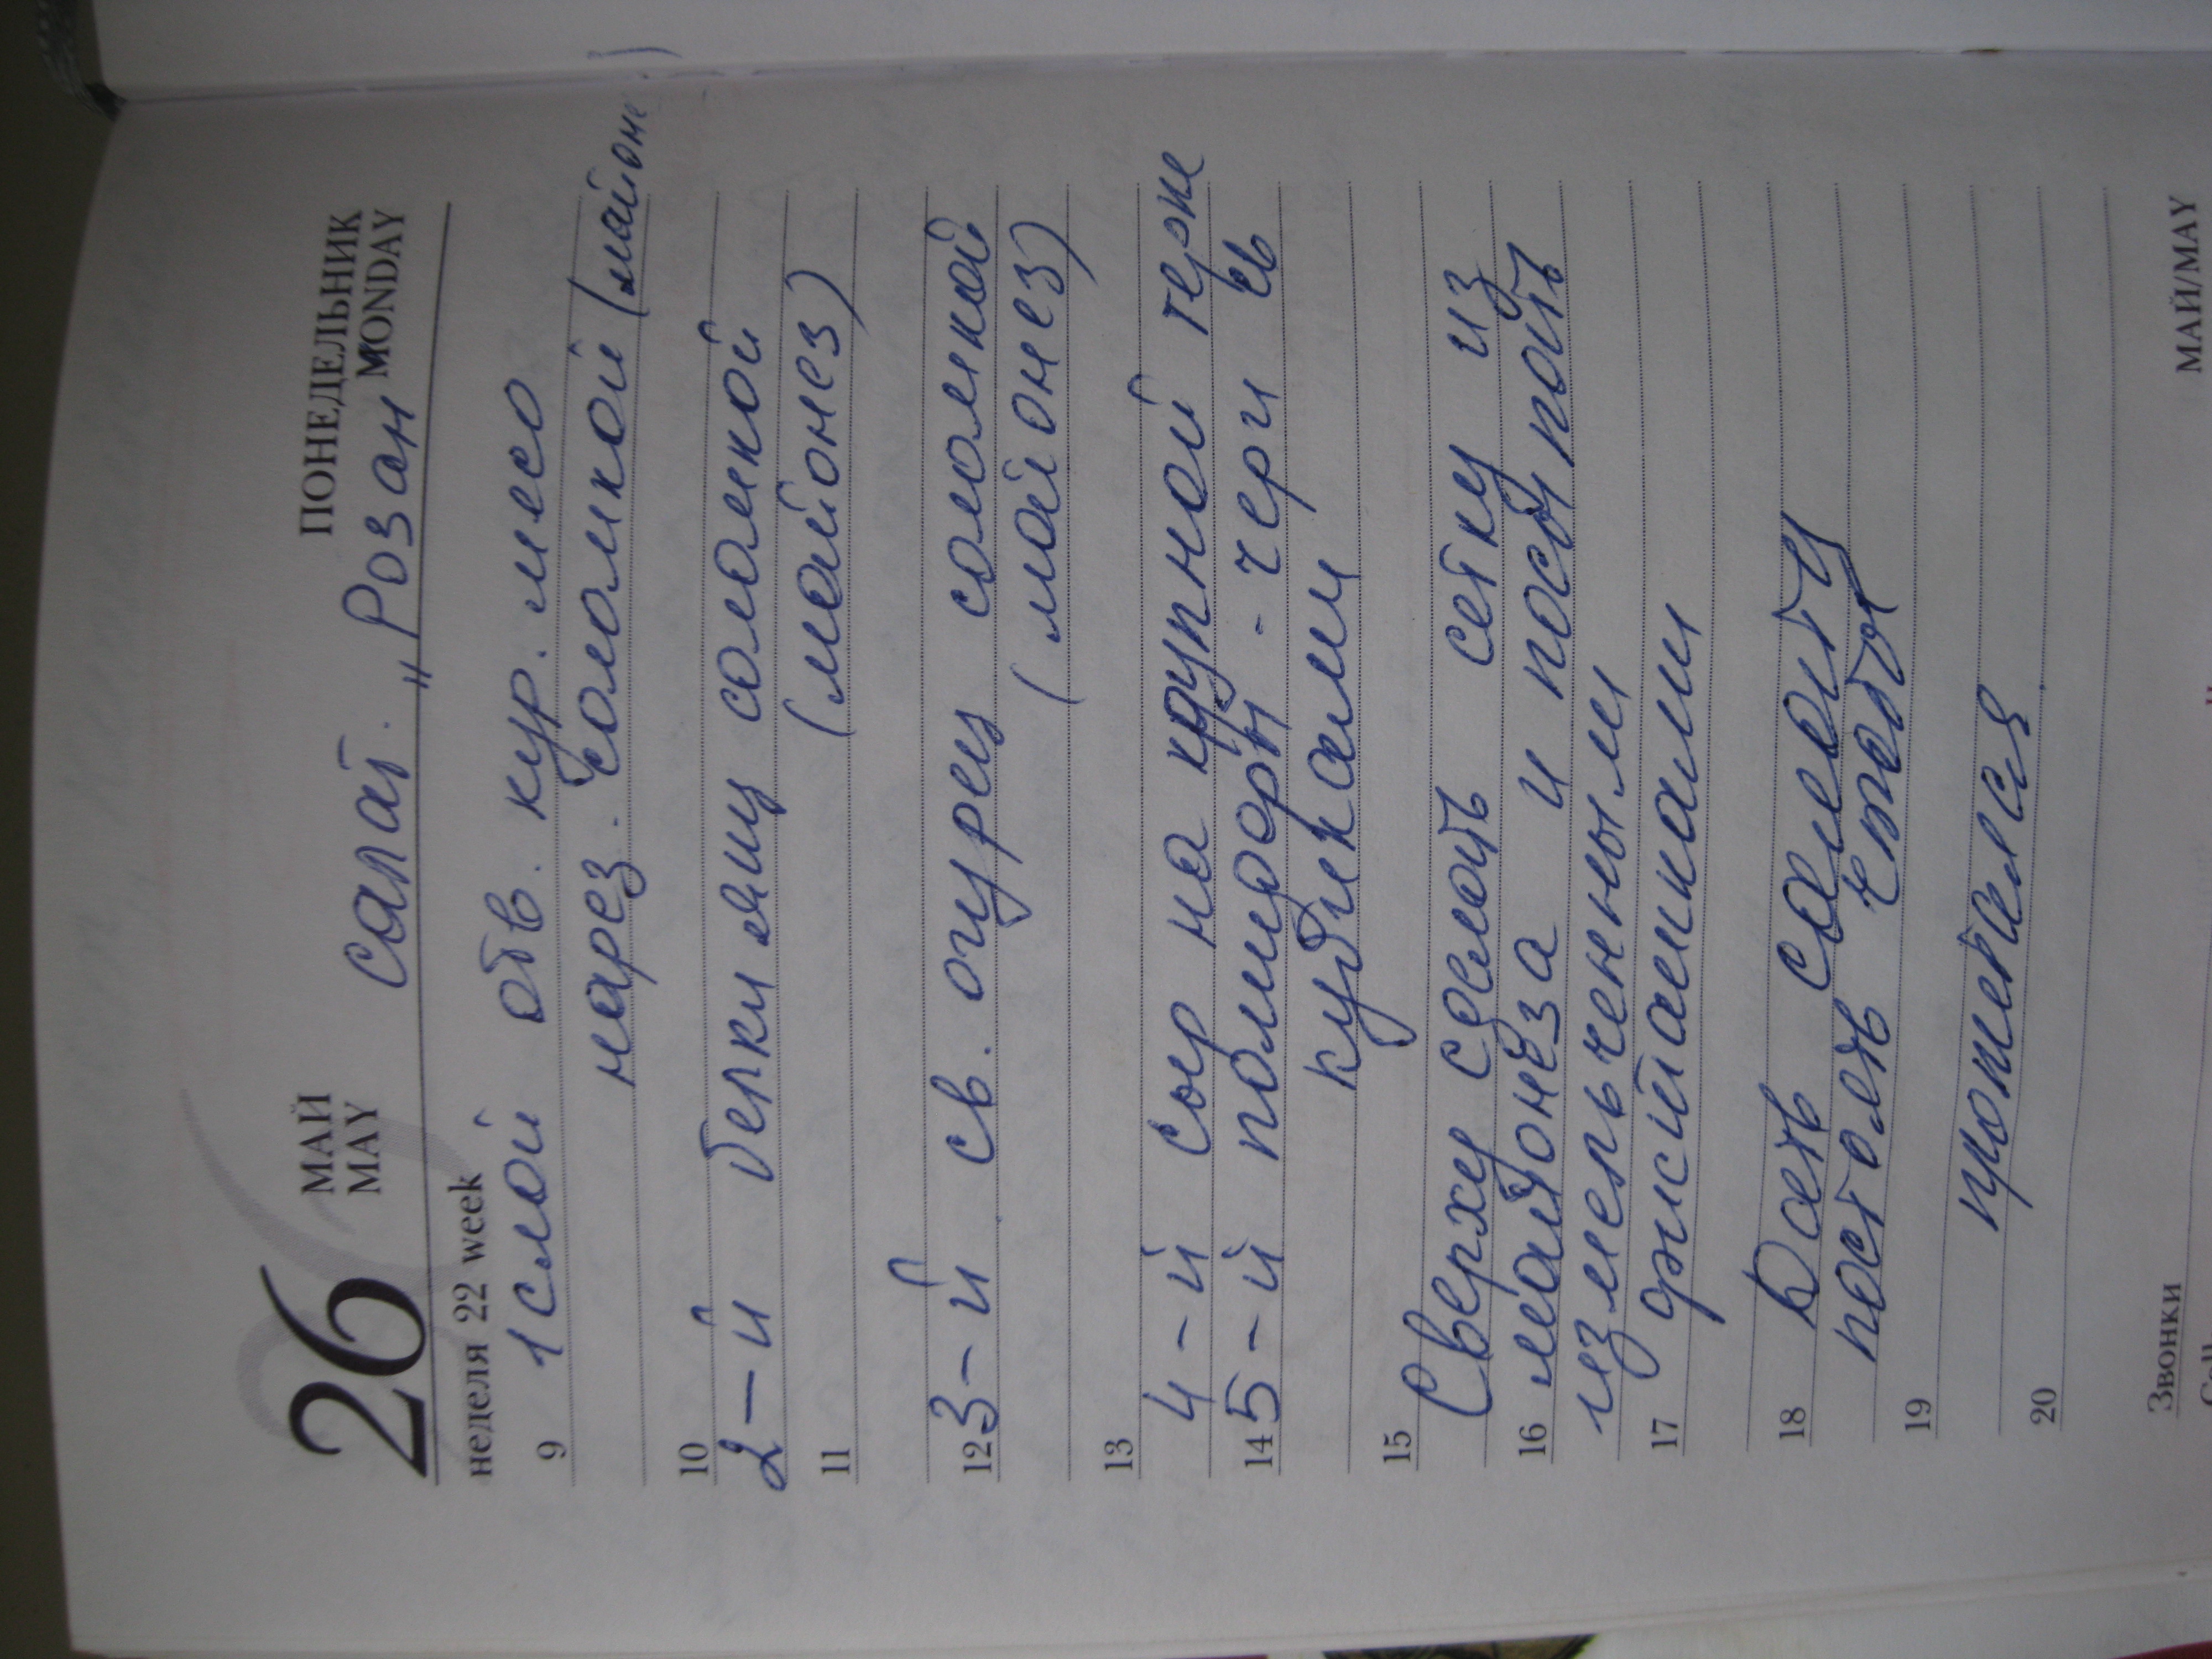 26 МАЙ ПОНЕДЕЛЬНИК
MAY MONDAY
салат. „Розан
неделя 22 week
9 1 слой отв. кур. мясо
нарез. соломкой (майоне
10
2-й белки яиц соломкой
11 (майонез)
12 3-й св. огурец соломкой
(майонез)
13
4-й сыр на крупной терке
14 5-й помидоры - черри
кубиками
15 Сверху сделать сетку из
16 майонеза и посыпать
измельченными
17 фисташками
18 Дать салату
постоять чтобы
19
пропитался
20
Звонки МАЙ/MAY